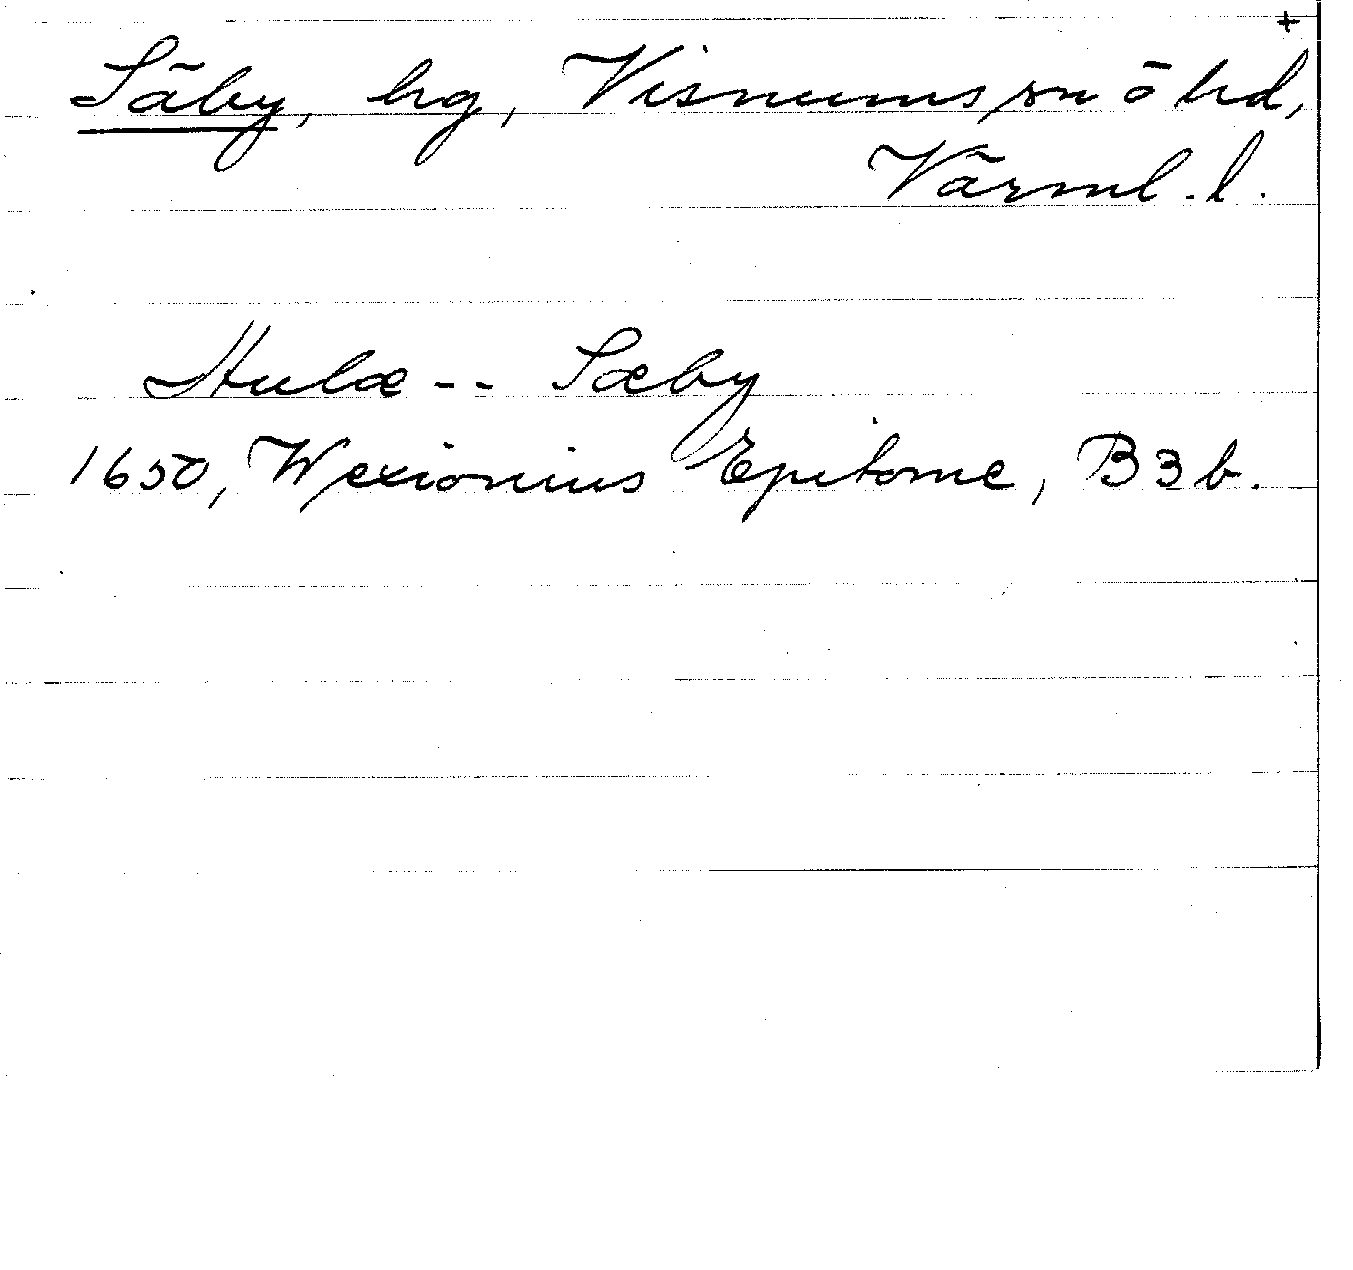 +
Säby, hg, Visnums sn ō hd,
Värml. l.
Hulæ -- Sæby
1650, Wexionius Epitome, B3b.